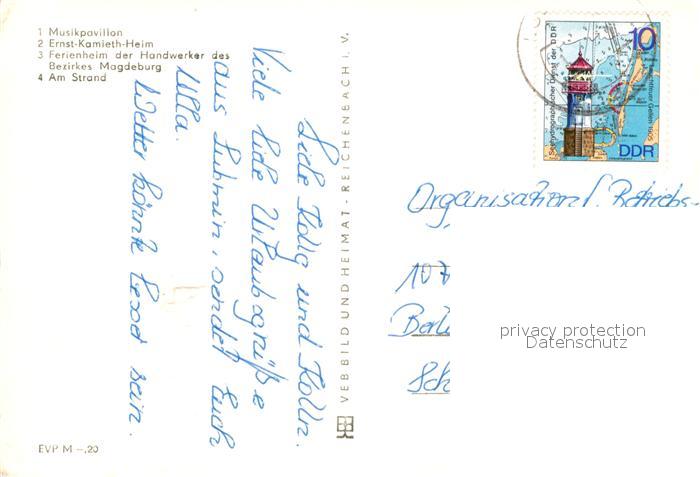 1 Musikpavillon
2 Ernst-Kamieth-Heim
3 Ferienheim der Handwerker des
Bezirkes Magdeburg
4 Am Strand
Liebe Kollg und Kolln.
Viele liebe Urlaubsgrüße
aus Lubmin, sendet Euch
Ulla.
Wetter könnte besser sein.
VEB BILD UND HEIMAT · REICHENBACH I. V.
EVP M –,20
10
Seehydrographischer Dienst der DDR
Leuchtfeuer Gellen 1905
DDR
Organisation f. Betriebs-
107
Berli
Sch
privacy protection
Datenschutz